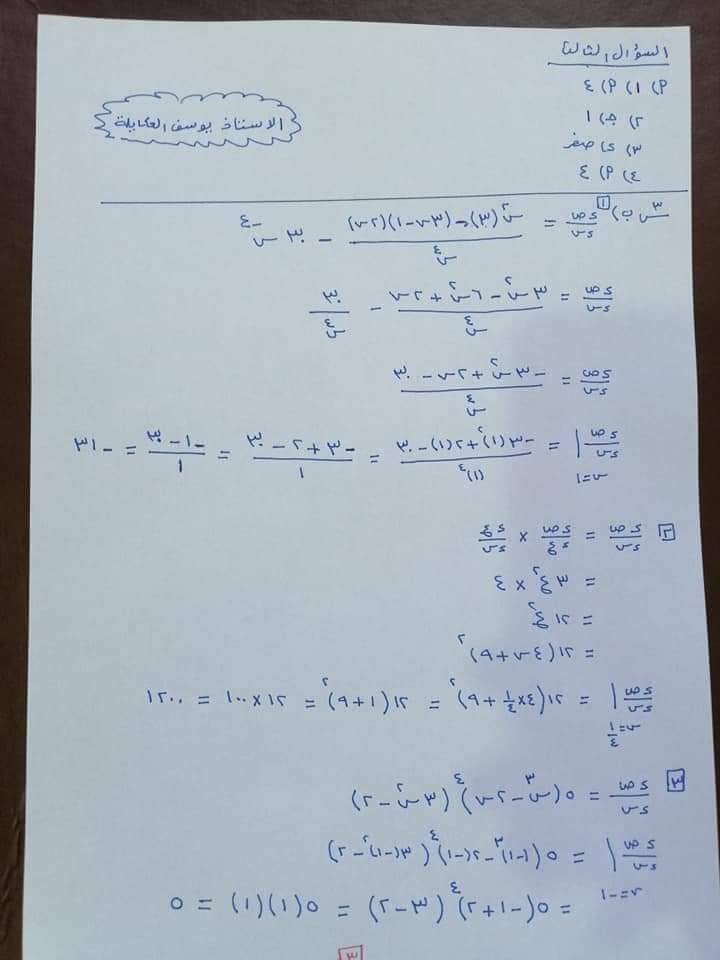 السؤال الثالث
أ) ١) أ) ٤
٢) ج) ١
٣) د) صفر
٤) أ) ٤
الاستاذ يوسف العكايلة
س٣ ب) ١ دص/دس = (س²(٣) - (٣س-١)(٢س))/س⁴ - ٣٠ س⁻⁴
دص/دس = (٣س² - ٦س² + ٢س)/س⁴ - ٣٠/س⁴
دص/دس = (-٣س² + ٢س - ٣٠)/س⁴
دص/دس | س=١ = (-٣(١)² + ٢(١) - ٣٠)/(١)⁴ = (-٣ + ٢ - ٣٠)/١ = (-١ - ٣٠)/١ = -٣١
٢ دص/دس = دص/دع × دع/دس
= ٣ع² × ٤
= ١٢ع²
= ١٢(٤س + ٩)²
دص/دس | س=١/٤ = ١٢(٤×١/٤ + ٩)² = ١٢(١ + ٩)² = ١٢×١٠٠ = ١٢٠٠
٣ دص/دس = ٥(س³ - ٢س)⁴ (٣س² - ٢)
دص/دس | س=-١ = ٥((-١)³ - ٢(-١))⁴ (٣(-١)² - ٢)
= ٥(-١ + ٢)⁴ (٣ - ٢) = ٥(١)(١) = ٥
٣